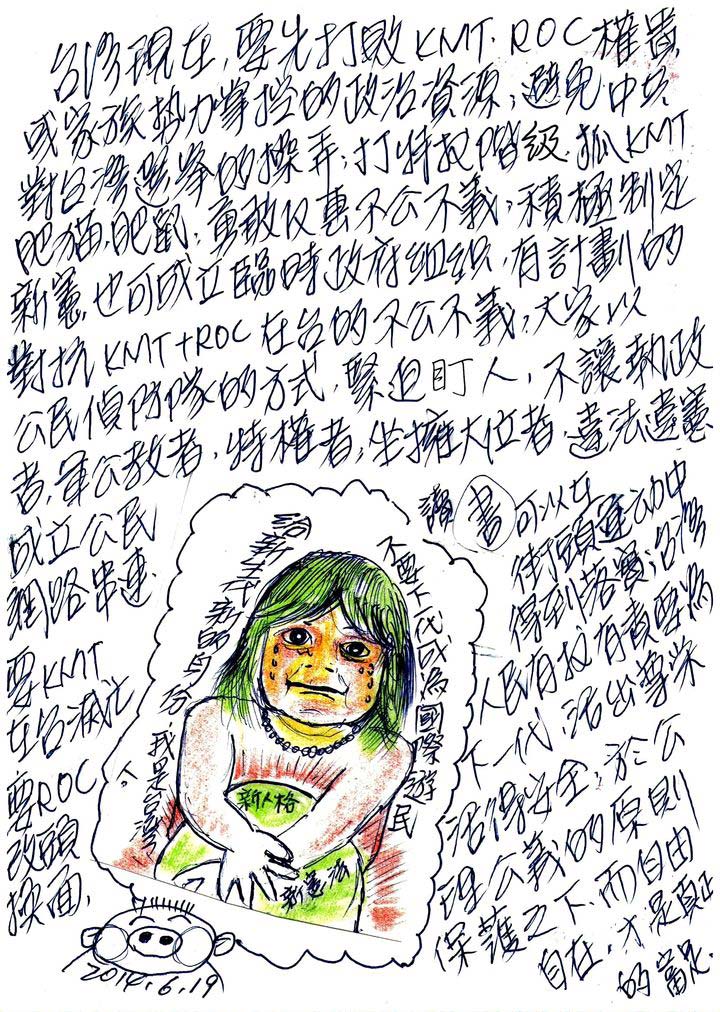 台灣現在，要先打敗KMT．ROC權貴
或家族勢力掌控的政治資源，避免中共
對台灣選舉的操弄；打特权階級．抓KMT
肥貓．肥鼠；勇敢反專不公不義，積極制定
新憲．也可成立臨時政府組織，有計劃的
對抗KMT+ROC在台的不公不義，大家以
公民偵防隊的方式，緊迫盯人，不讓執政
者．軍公教者，特權者，坐擁大位者．違法違憲
成立公民
網路串連．
要KMT
在台滅亡
要ROC
改頭
換面，
讀書可以在
街頭運动中
得到落實；台灣
人民有权有責要為
下一代．活出尊榮
活得安全，於公
理公義的原則
保護之下．而自由
自在．才是真正
的富足．
給新生代新的身份
我是台灣人
不要下一代成為國際遊民
新人格
新憲法
2014.6.19